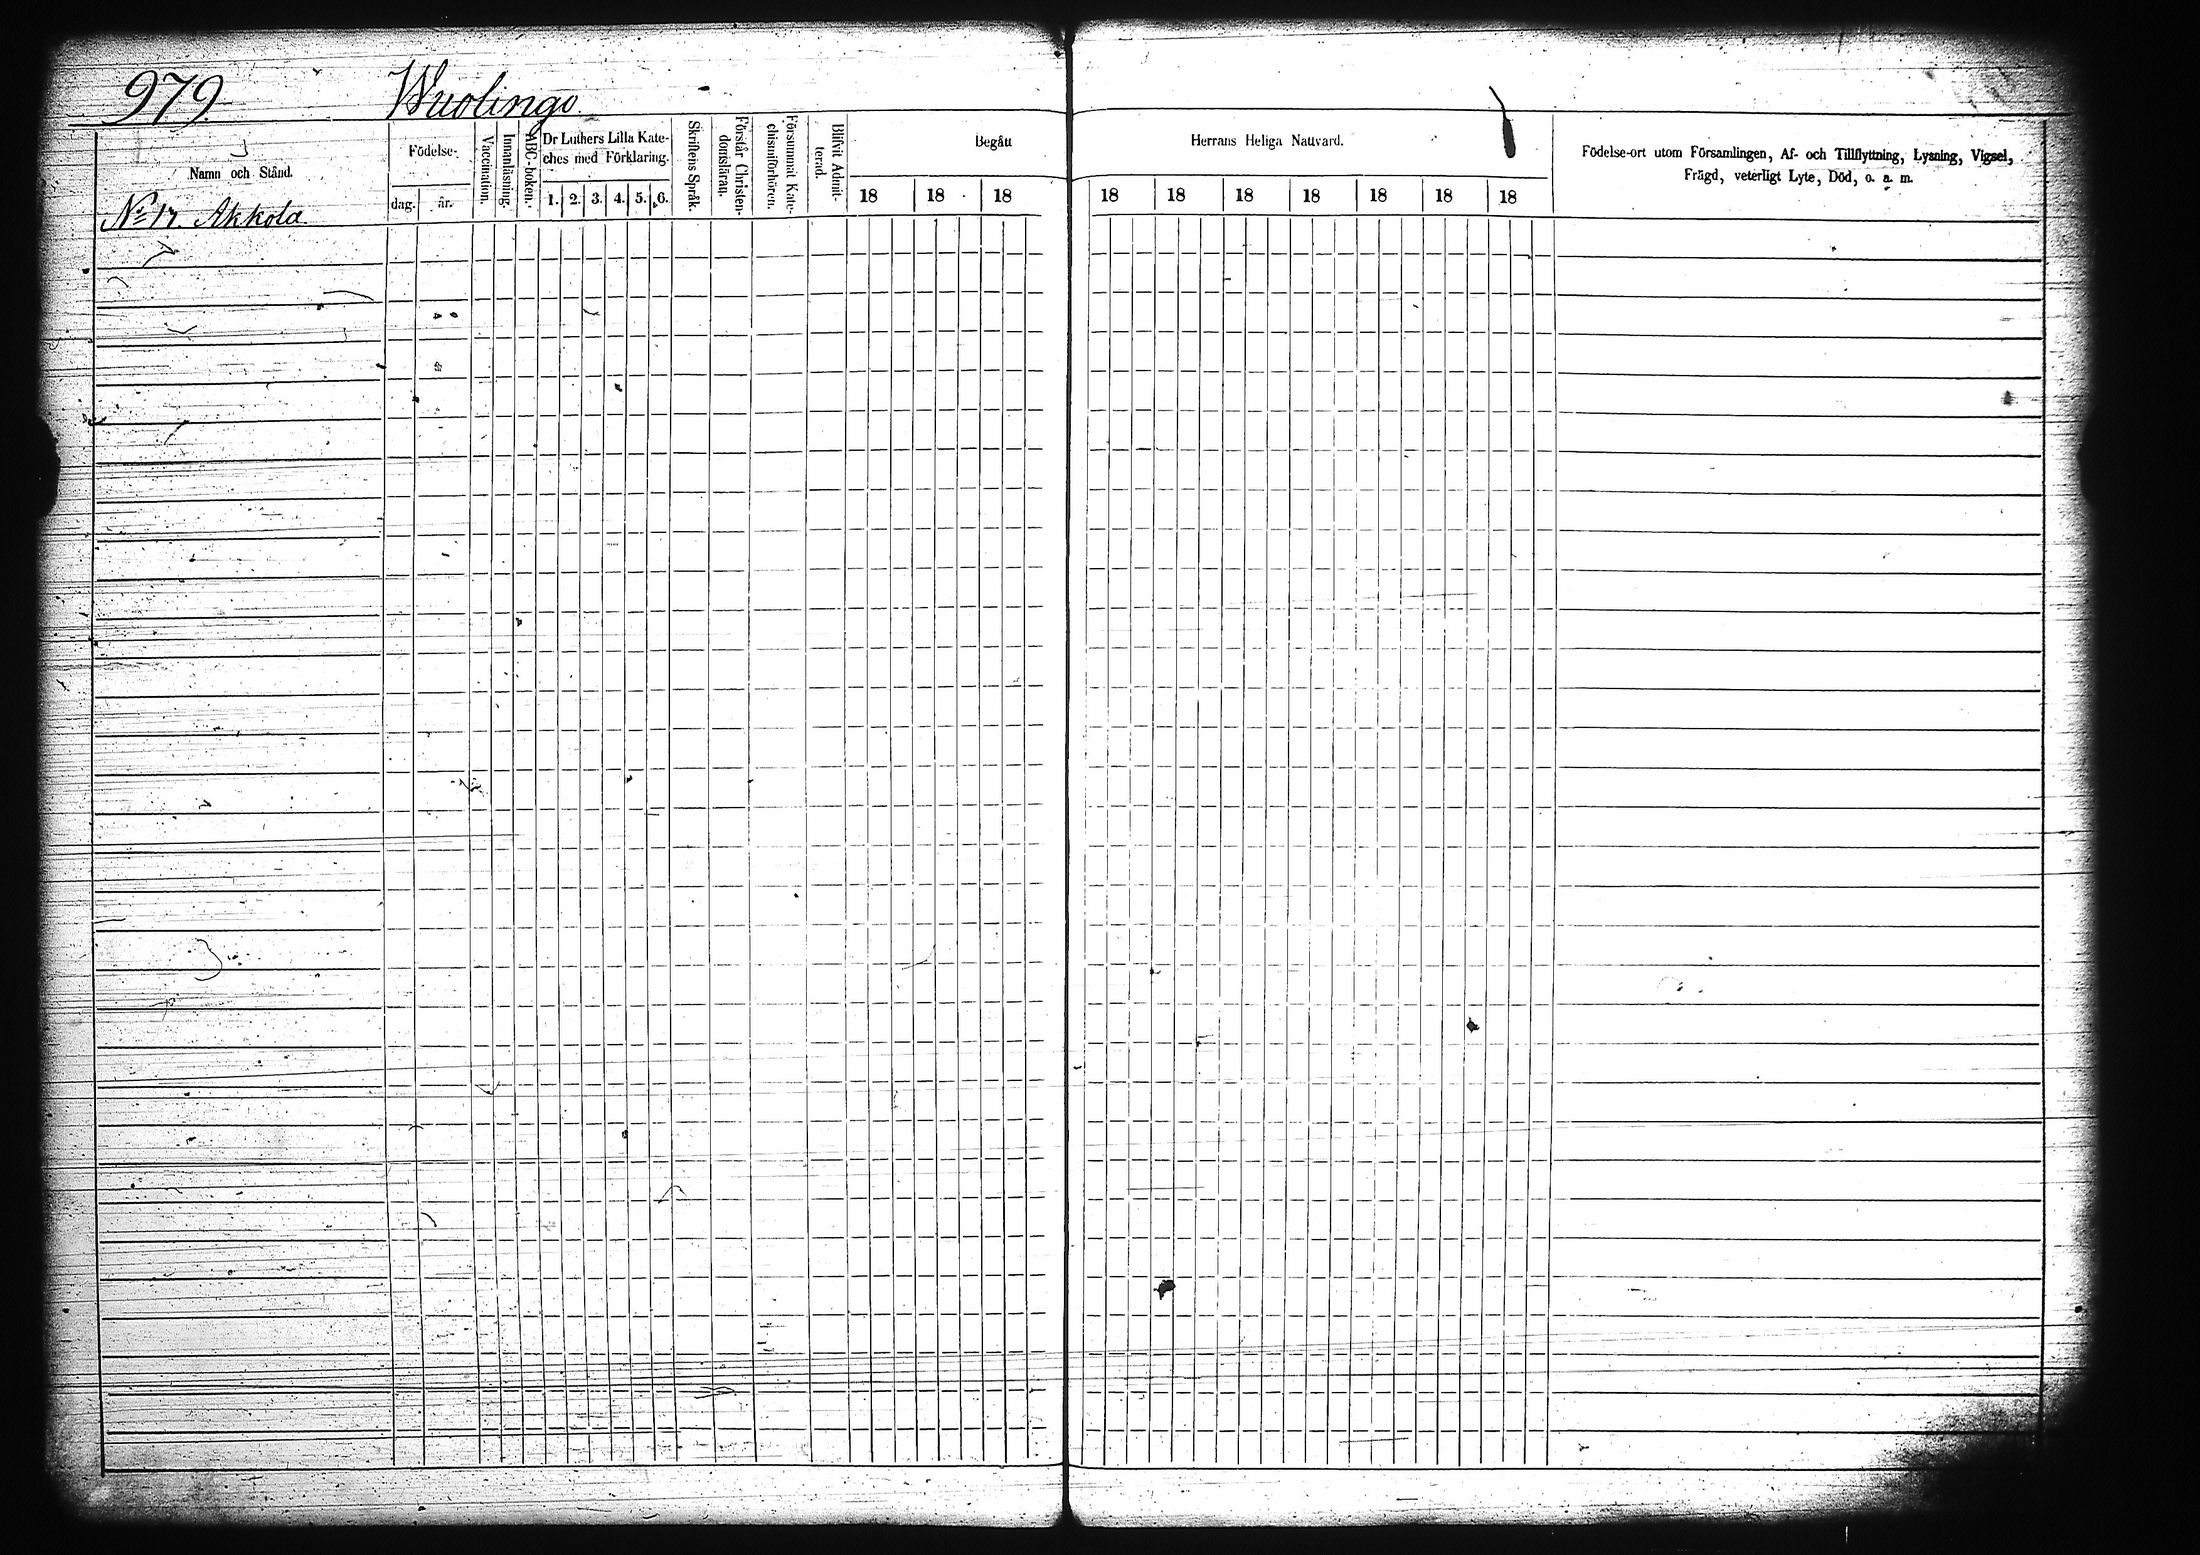 979 Wuolingo
Namn och Stånd.
Födelse-
dag. år.
Vaccination.
Innanläsning.
ABC-boken.
Dr Luthers Lilla Kate-
ches med Förklaring.
1. 2. 3. 4. 5. 6.
Skriftens Språk.
Förstår Christen-
domsläran.
Försummat Kate-
chismiförhören.
Blifvit Admit-
terad.
Begått Herrans Heliga Nattvard.
18 18 18 18 18 18 18 18 18 18
Födelse-ort utom Församlingen, Af- och Tillflyttning, Lysning, Vigsel,
Frägd, veterligt Lyte, Död, o. a. m.
No 17. Akkola